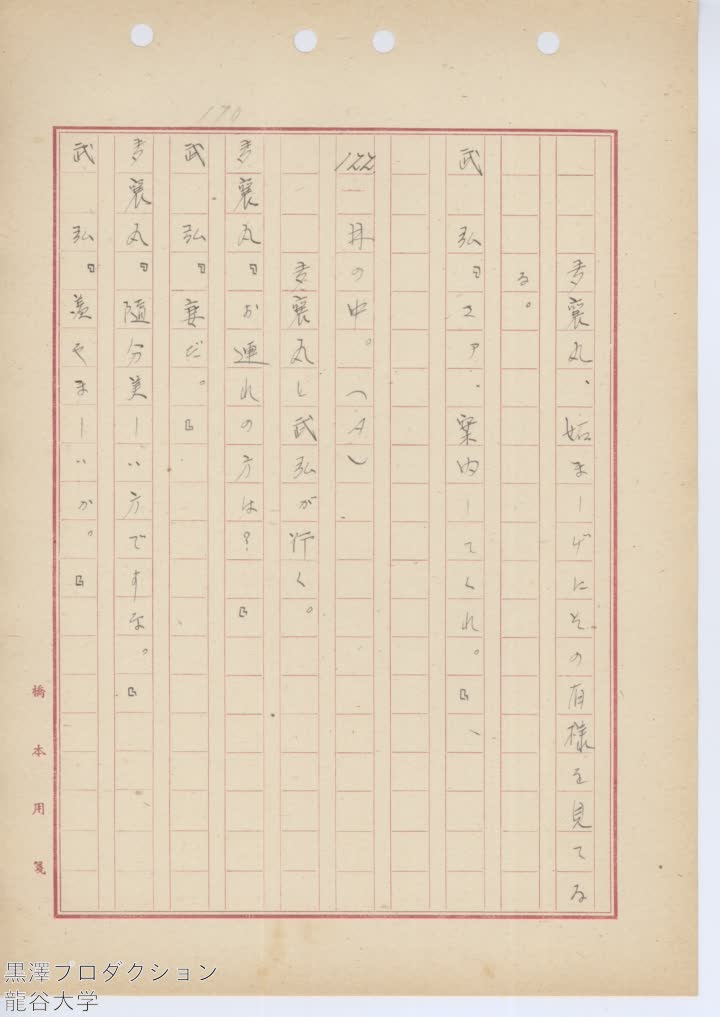 170
多襄丸、妬ましげにその有様を見てゐ
る。
武 弘『さア、案内してくれ。』、
122 林の中。(A)
多襄丸と武弘が行く。
多襄丸『お連れの方は?』
武 弘『妻だ。』
多襄丸『随分美しい方ですな。』
武 弘『羨やましいか。』
橋本用箋
黒澤プロダクション
龍谷大学